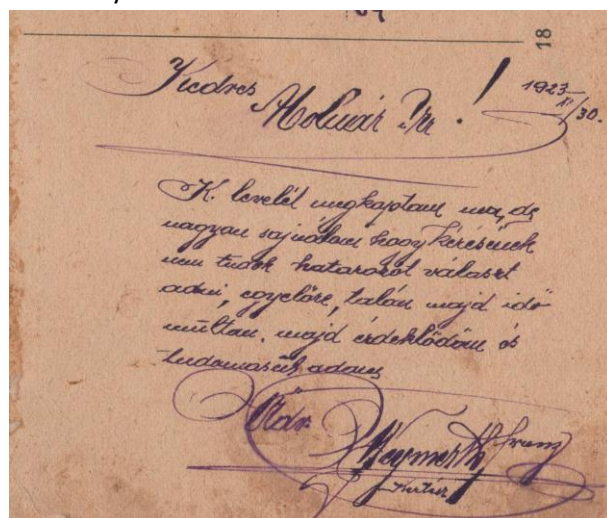 18
Kedves
Molnár Úr!
1923
XI/30.
K. levelét megkaptam ma, de
nagyon sajnálom hogy kérésének
nem tudok hatarozot választ
adni, egyelőre, talán majd idő
multan, majd érdeklődöm és
tudomasuk adom
Üdv.
Franz